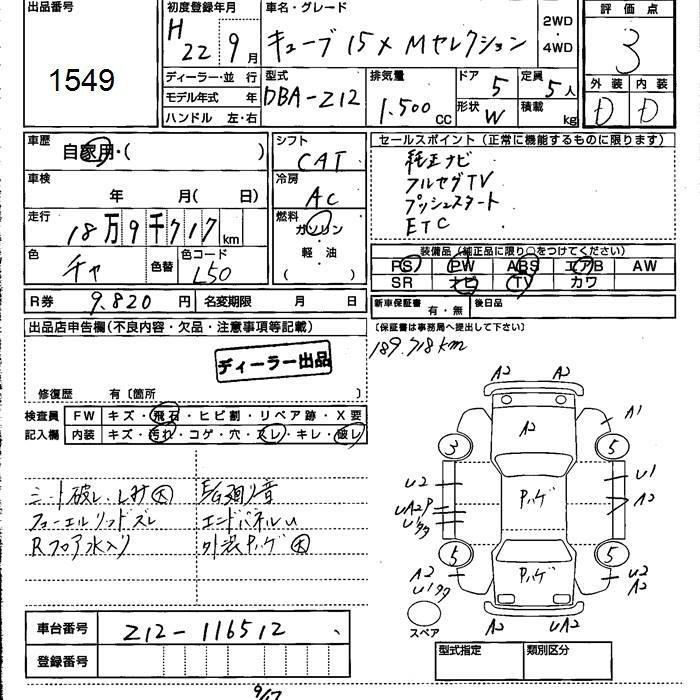 出品番号
1549
初度登録年月
H
22 9月
車名・グレード
キューブ 15X Mセレクション
2WD
・
4WD
評価点
3
外装 内装
D D
ディーラー・並行
モデル年式 年
ハンドル 左・右
型式
DBA-Z12
排気量
1.500 CC
ドア 5
形状 W
定員 5人
積載 kg
車歴
自家用・( )
車検
年 月( 日)
走行
18万9千717km
色
チャ
色替
色コード
L50
シフト
CAT
冷房
AC
燃料
ガソリン
・
軽油
( )
セールスポイント(正常に機能するものに限ります)
純正ナビ
フルセグTV
プッシュスタート
ETC
装備品(純正品に限り○をつけてください)
PS PW ABS エアB AW
SR ナビ TV カワ
R券 9.820円 名変期限 月 日
新車保証書 有・無 後日品
(保証書は事務局へ提出して下さい)
189.718km
出品店申告欄(不良内容・欠品・注意事項等記載)
ディーラー出品
修復歴 有〔箇所 〕
検査員
記入欄
FW キズ・飛石・ヒビ割・リペア跡・X要
内装 キズ・汚れ・コゲ・穴・スレ・キレ・破レ
シート破レ、シミ大
フューエルリッドズレ
Rフロア水入り
エンドパネルU
外装Pハゲ大
A2 A2
A2
A1
3 5
U2
U1
UA2P
A2
Pハゲ
5 5
Pハゲ
A2
U2
A2
A2 UA2
スペア
車台番号 Z12-116512
登録番号
型式指定 類別区分
9/17